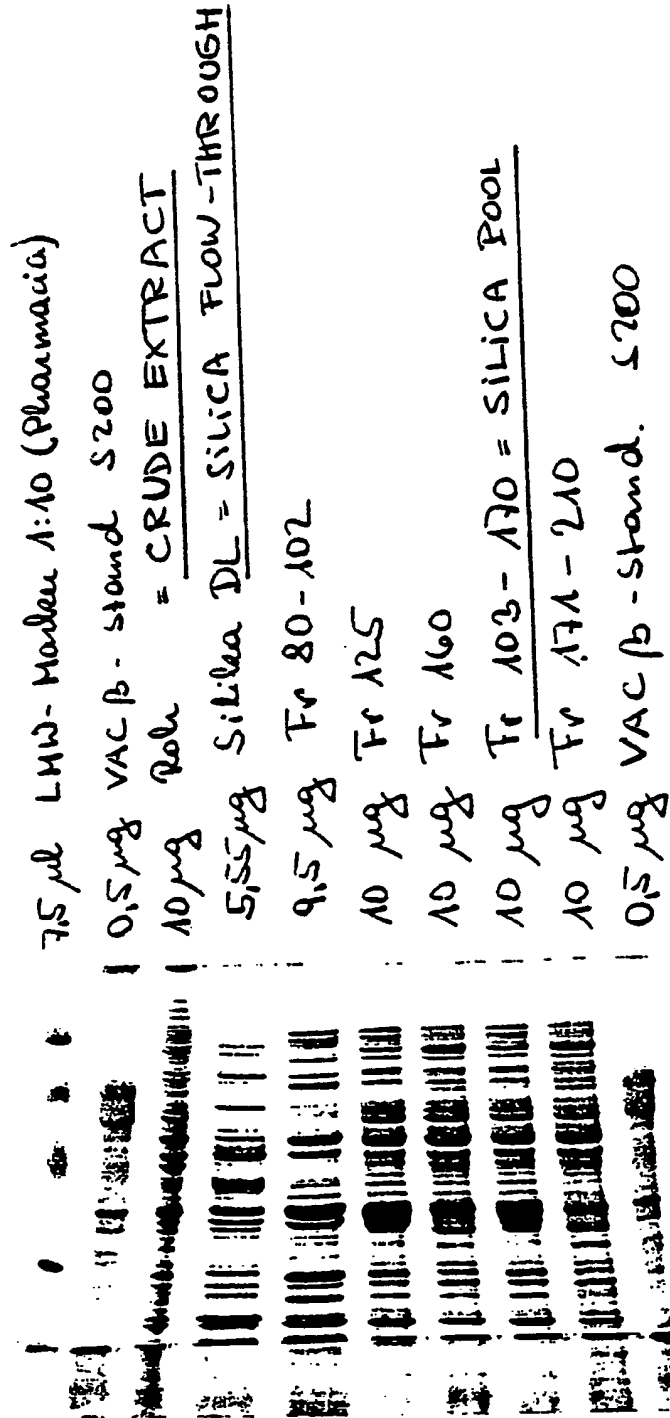 7,5 µl LMW-Marker 1:10 (Pharmacia)
0,5 µg VAC β-stand S200
10 µg Roh = CRUDE EXTRACT
5,55 µg Silika DL = SILICA FLOW-THROUGH
9,5 µg Fr 80-102
10 µg Fr 125
10 µg Fr 160
10 µg Fr 103-170 = SILICA POOL
10 µg Fr 171-210
0,5 µg VAC β-stand. S200